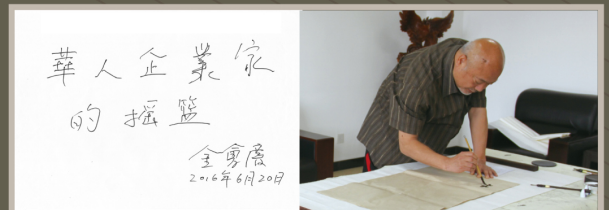 華人企業家
的摇篮
金勇
2016年6月20日